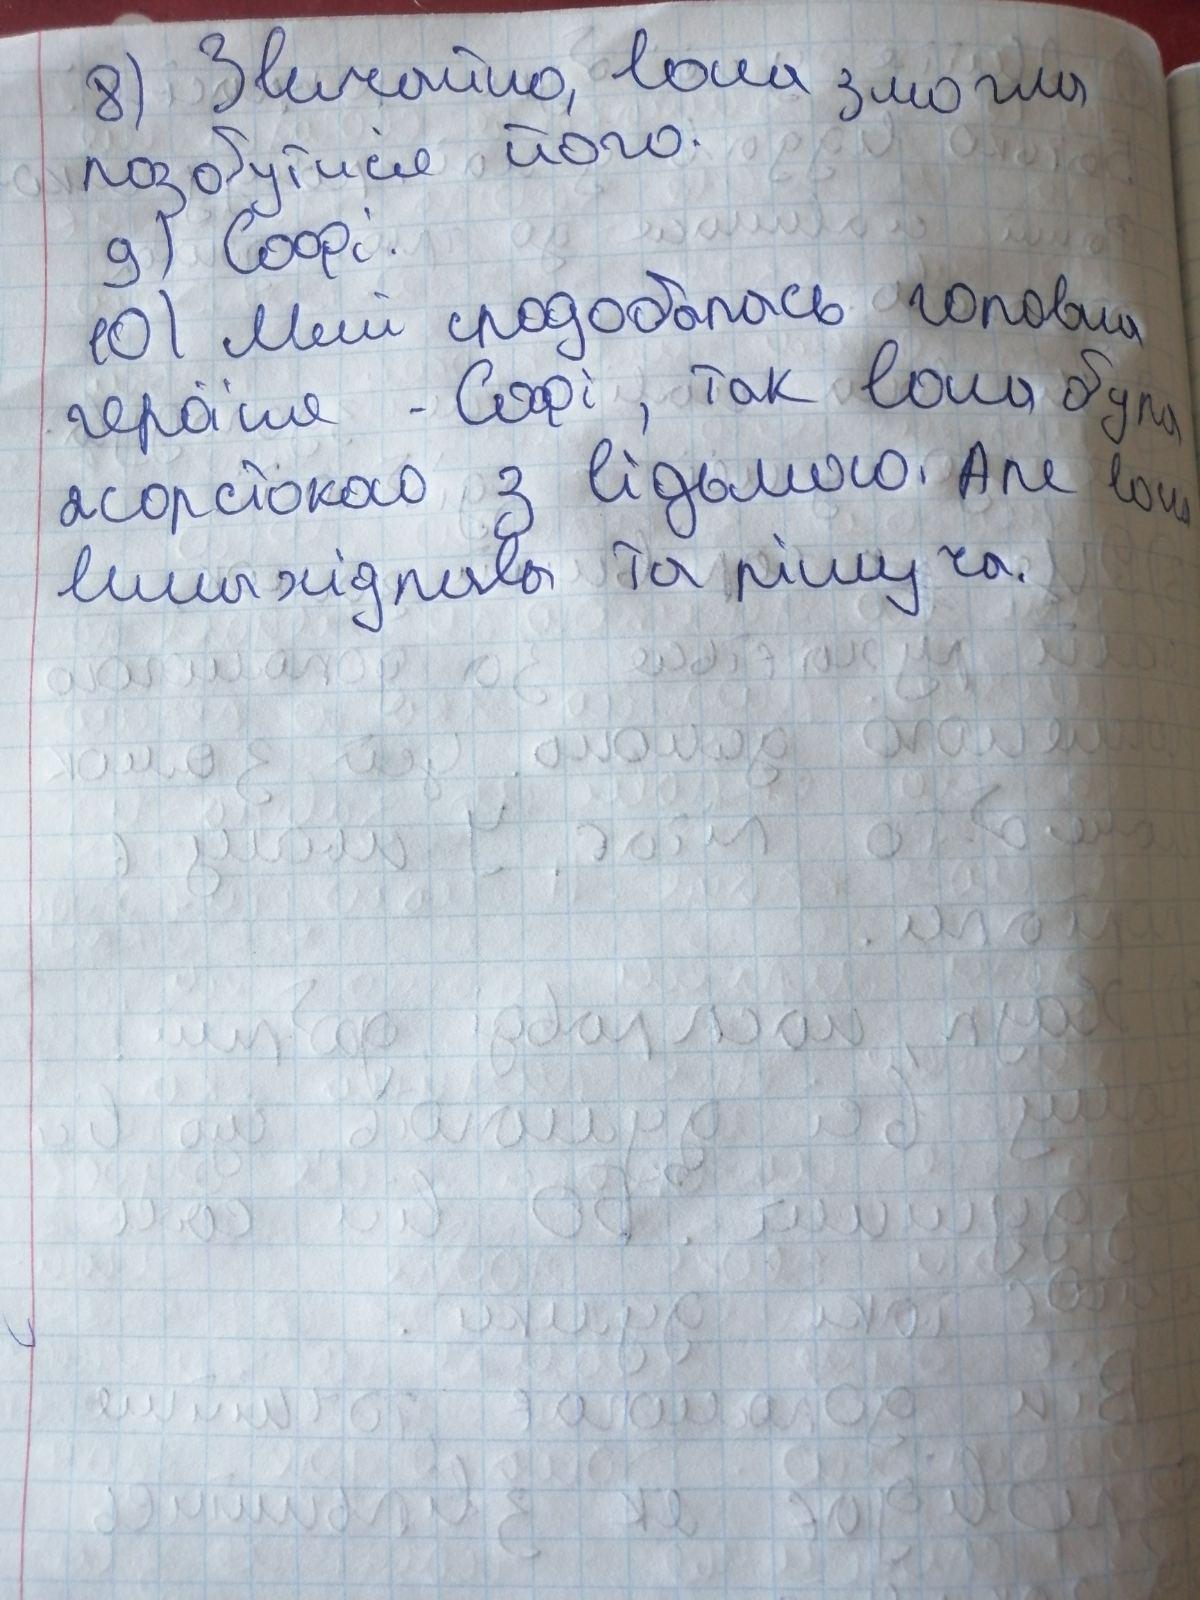 8) Звичайно, вона змогла
позбутися його.
9) Софі.
10) Мені сподобалась головна
героїня - Софі, так вона була
жорстокою з відьмою. Але вона
винахідлива та рішуча.